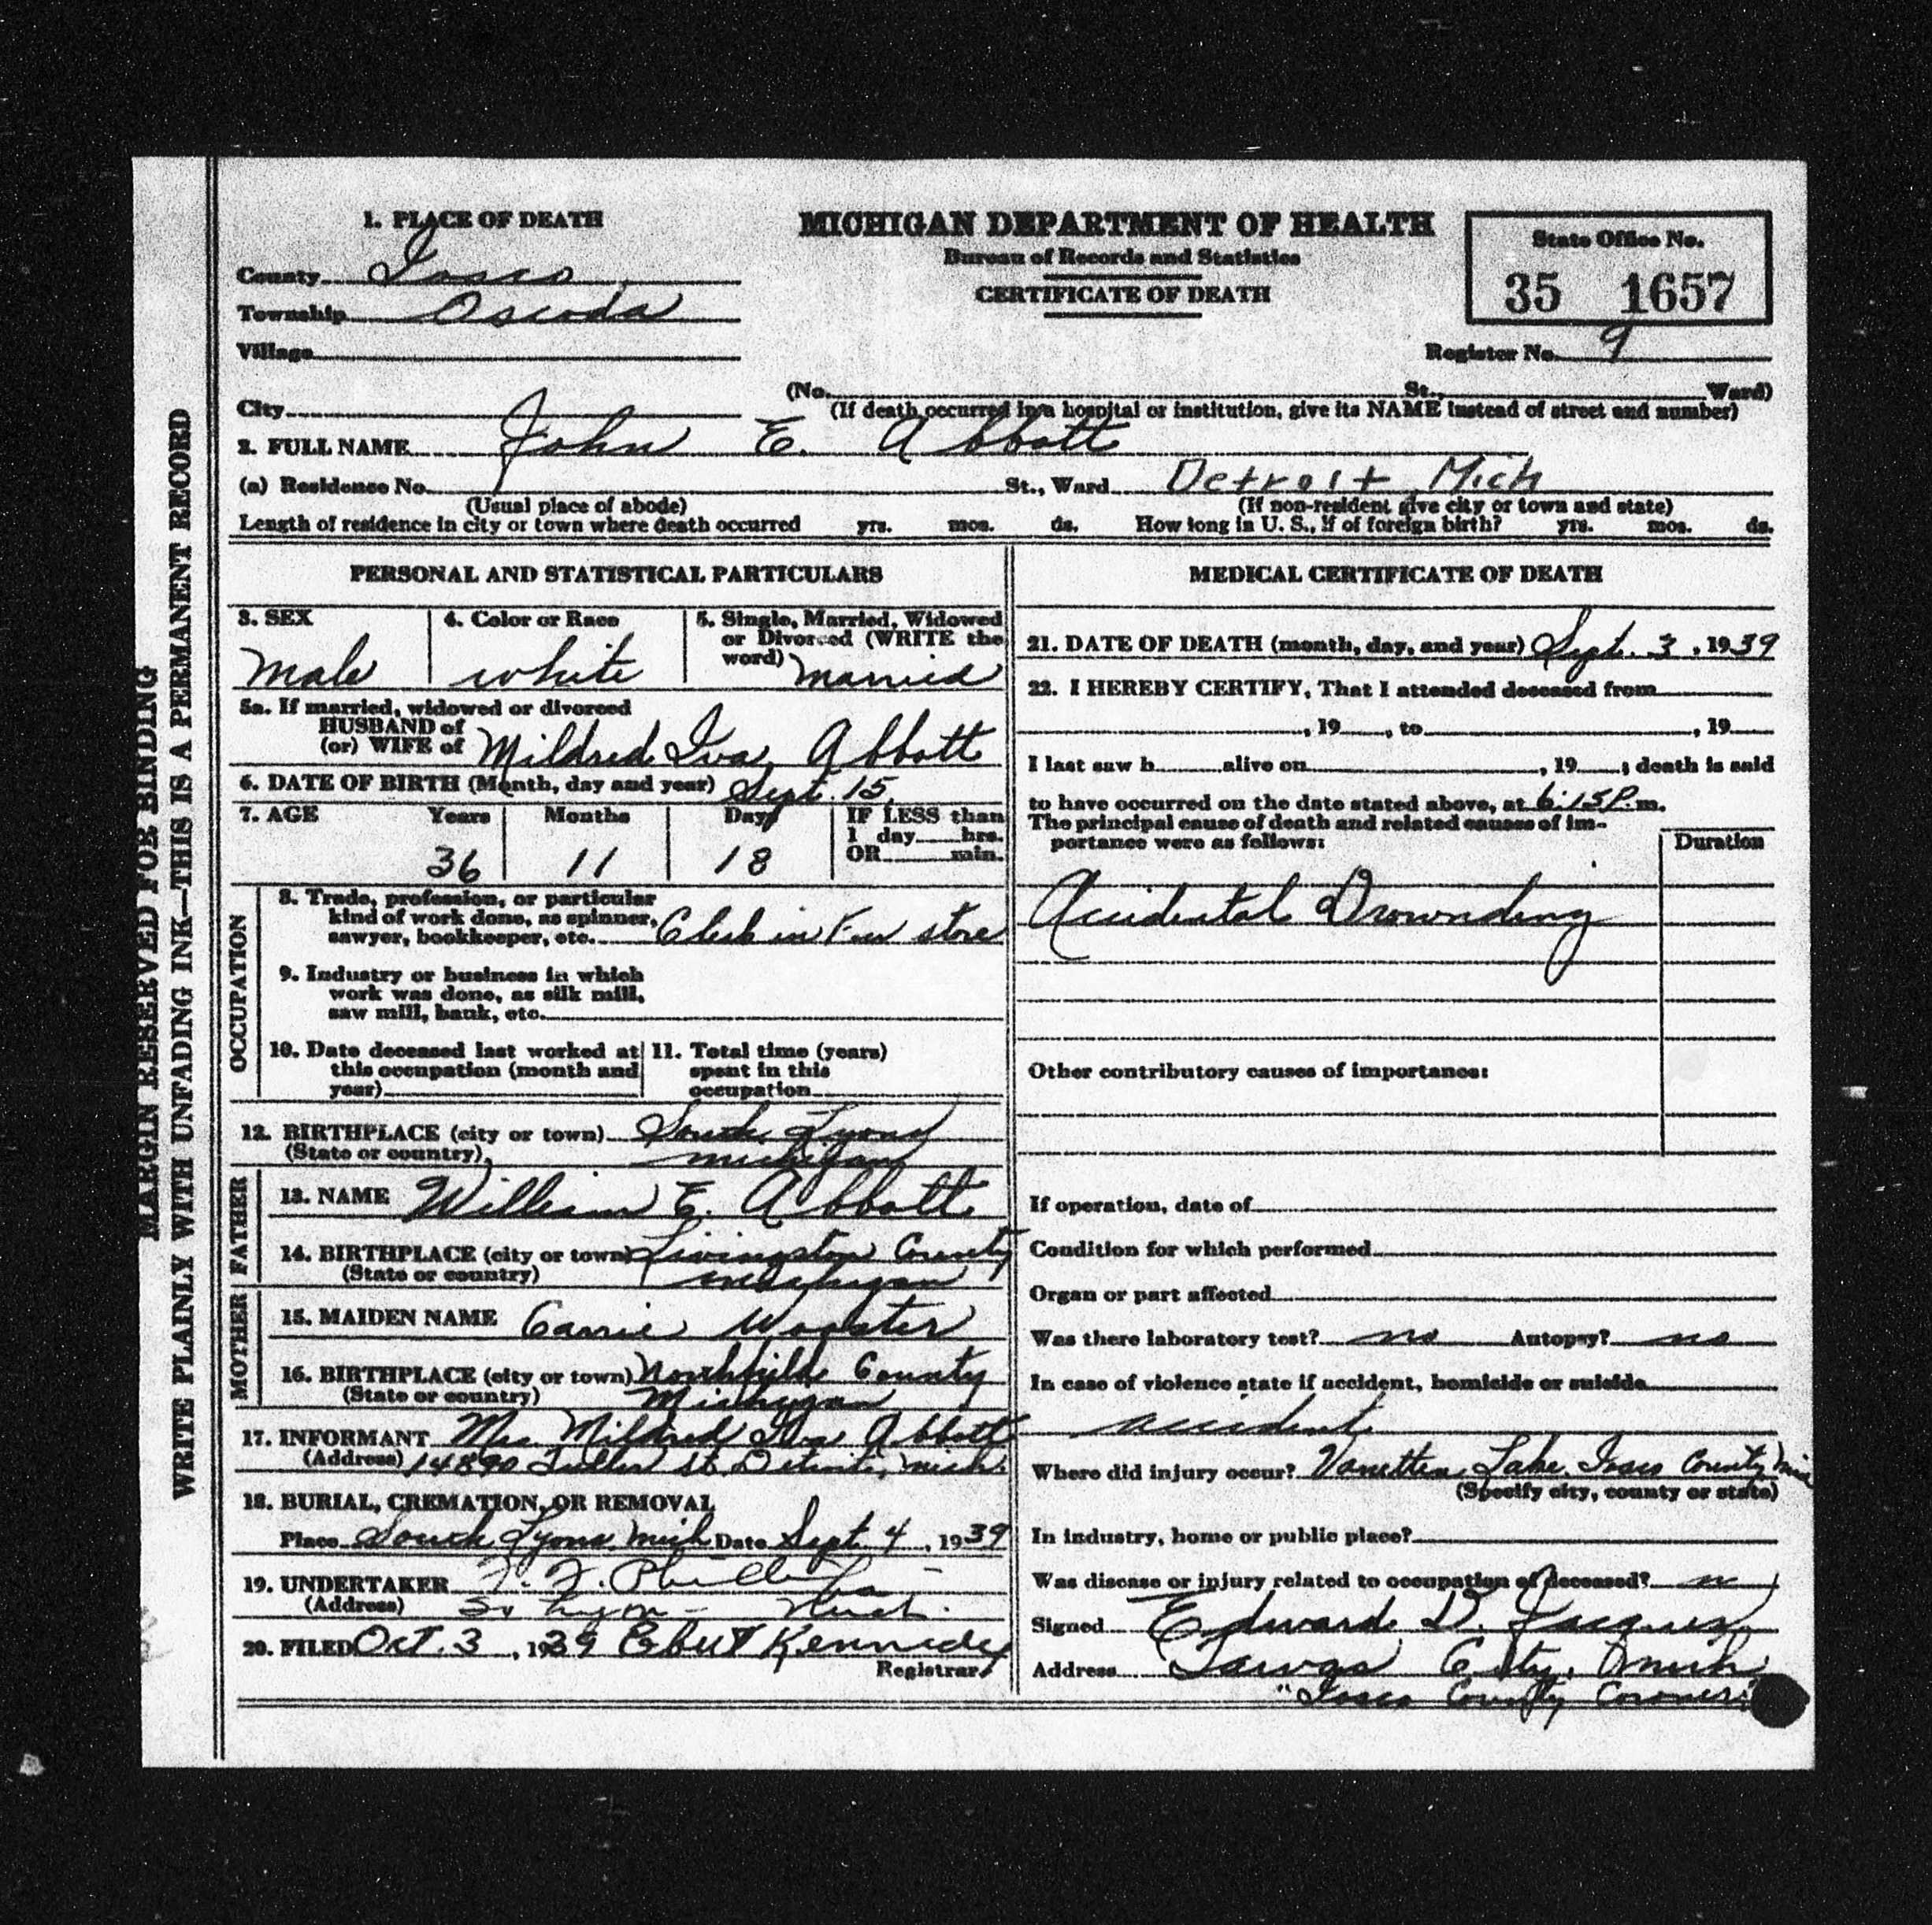 1. PLACE OF DEATH
County Iosco
Township Oscoda
Village
City
MICHIGAN DEPARTMENT OF HEALTH
Bureau of Records and Statistics
CERTIFICATE OF DEATH
State Office No.
35 1657
Register No. 9
(No. St., Ward)
(If death occurred in a hospital or institution, give its NAME instead of street and number)
2. FULL NAME John E. Abbott
(a) Residence No. St., Ward Detroit Mich
(Usual place of abode) (If non-resident give city or town and state)
Length of residence in city or town where death occurred yrs. mos. ds. How long in U. S., if of foreign birth? yrs. mos. ds.
MARGIN RESERVED FOR BINDING
WRITE PLAINLY WITH UNFADING INK—THIS IS A PERMANENT RECORD
PERSONAL AND STATISTICAL PARTICULARS
3. SEX
Male
4. Color or Race
white
5. Single, Married, Widowed
or Divorced (WRITE the
word) Married
5a. If married, widowed or divorced
HUSBAND of
(or) WIFE of Mildred Iva Abbott
6. DATE OF BIRTH (Month, day and year) Sept. 15,
7. AGE Years Months Days
36 11 18
IF LESS than
1 day hrs.
OR min.
OCCUPATION
8. Trade, profession, or particular
kind of work done, as spinner,
sawyer, bookkeeper, etc. Clerk in Fur store
9. Industry or business in which
work was done, as silk mill,
saw mill, bank, etc.
10. Date deceased last worked at
this occupation (month and
year)
11. Total time (years)
spent in this
occupation
12. BIRTHPLACE (city or town) South Lyons
(State or country) Michigan
FATHER
13. NAME William E. Abbott
14. BIRTHPLACE (city or town) Livingston County
(State or country) Michigan
MOTHER
15. MAIDEN NAME Carrie Wooster
16. BIRTHPLACE (city or town) Northville County
(State or country) Michigan
17. INFORMANT Mrs Mildred Iva Abbott
(Address) 14890 Fuller St. Detroit, Mich.
18. BURIAL, CREMATION, OR REMOVAL
Place South Lyons, Mich Date Sept. 4, 1939
19. UNDERTAKER Phillips
(Address) So Lyon - Mich.
20. FILED Oct. 3, 1939 Kennedy
Registrar
MEDICAL CERTIFICATE OF DEATH
21. DATE OF DEATH (month, day, and year) Sept. 3, 1939
22. I HEREBY CERTIFY, That I attended deceased from
, 19 , to , 19
I last saw h alive on , 19 ; death is said
to have occurred on the date stated above, at 6:15 P. m.
The principal cause of death and related causes of im-
portance were as follows:
Duration
Accidental Drownding
Other contributory causes of importance:
If operation, date of
Condition for which performed
Organ or part affected
Was there laboratory test? no Autopsy? no
In case of violence state if accident, homicide or suicide
accident
Where did injury occur? Vanetten Lake, Iosco County Mich
(Specify city, county or state)
In industry, home or public place?
Was disease or injury related to occupation of deceased? no
Signed Edward D. Jacques
Address Tawas City, Mich
"Iosco County Coroner"